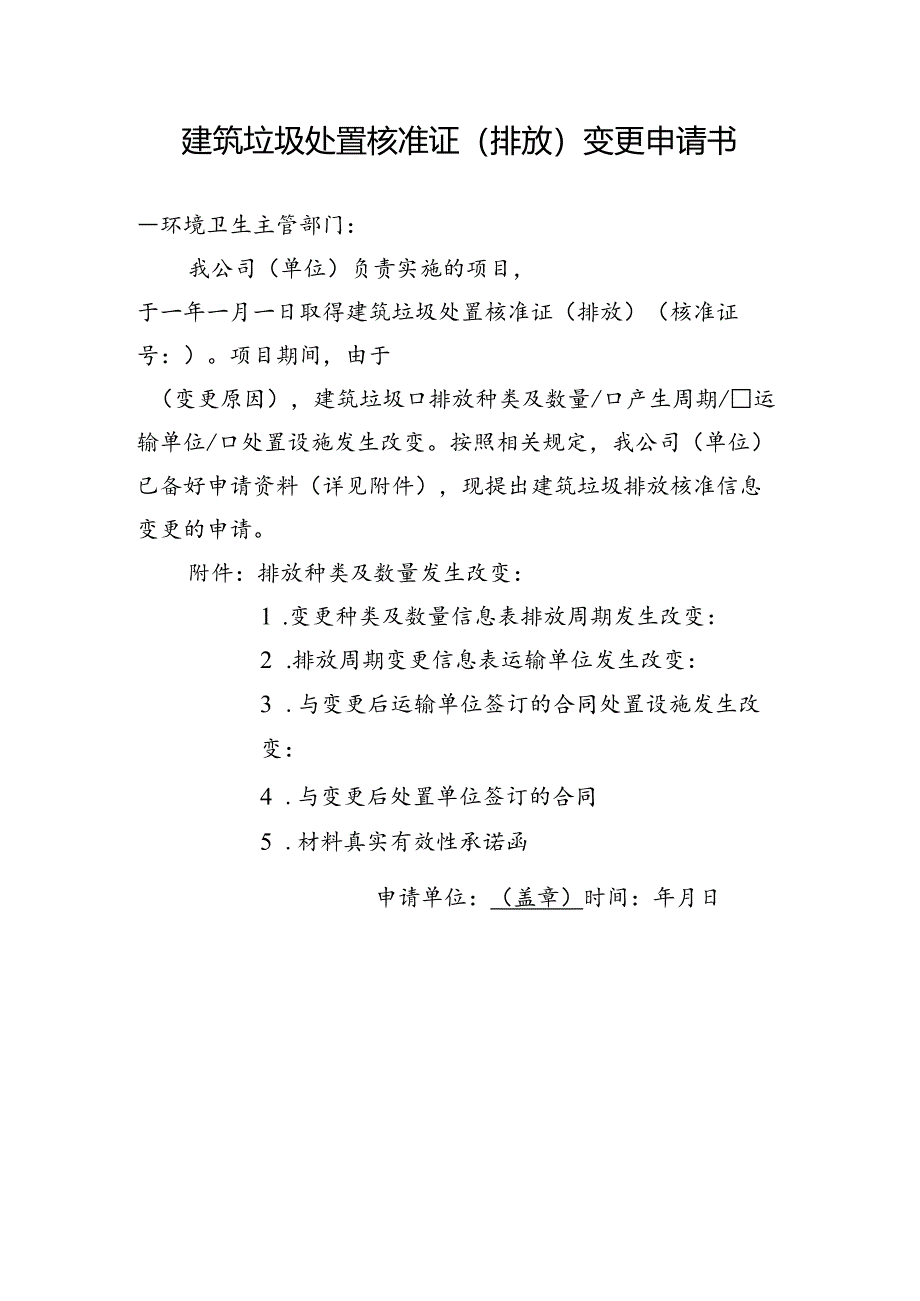 建筑垃圾处置核准证（排放）变更申请书
一环境卫生主管部门：
我公司（单位）负责实施的项目，
于一年一月一日取得建筑垃圾处置核准证（排放）（核准证
号：）。项目期间，由于
（变更原因），建筑垃圾口排放种类及数量/口产生周期/□运
输单位/口处置设施发生改变。按照相关规定，我公司（单位）
已备好申请资料（详见附件），现提出建筑垃圾排放核准信息
变更的申请。
附件：排放种类及数量发生改变：
1 .变更种类及数量信息表排放周期发生改变：
2 .排放周期变更信息表运输单位发生改变：
3 .与变更后运输单位签订的合同处置设施发生改
变：
4 .与变更后处置单位签订的合同
5 .材料真实有效性承诺函
申请单位：（盖章）时间：年月日